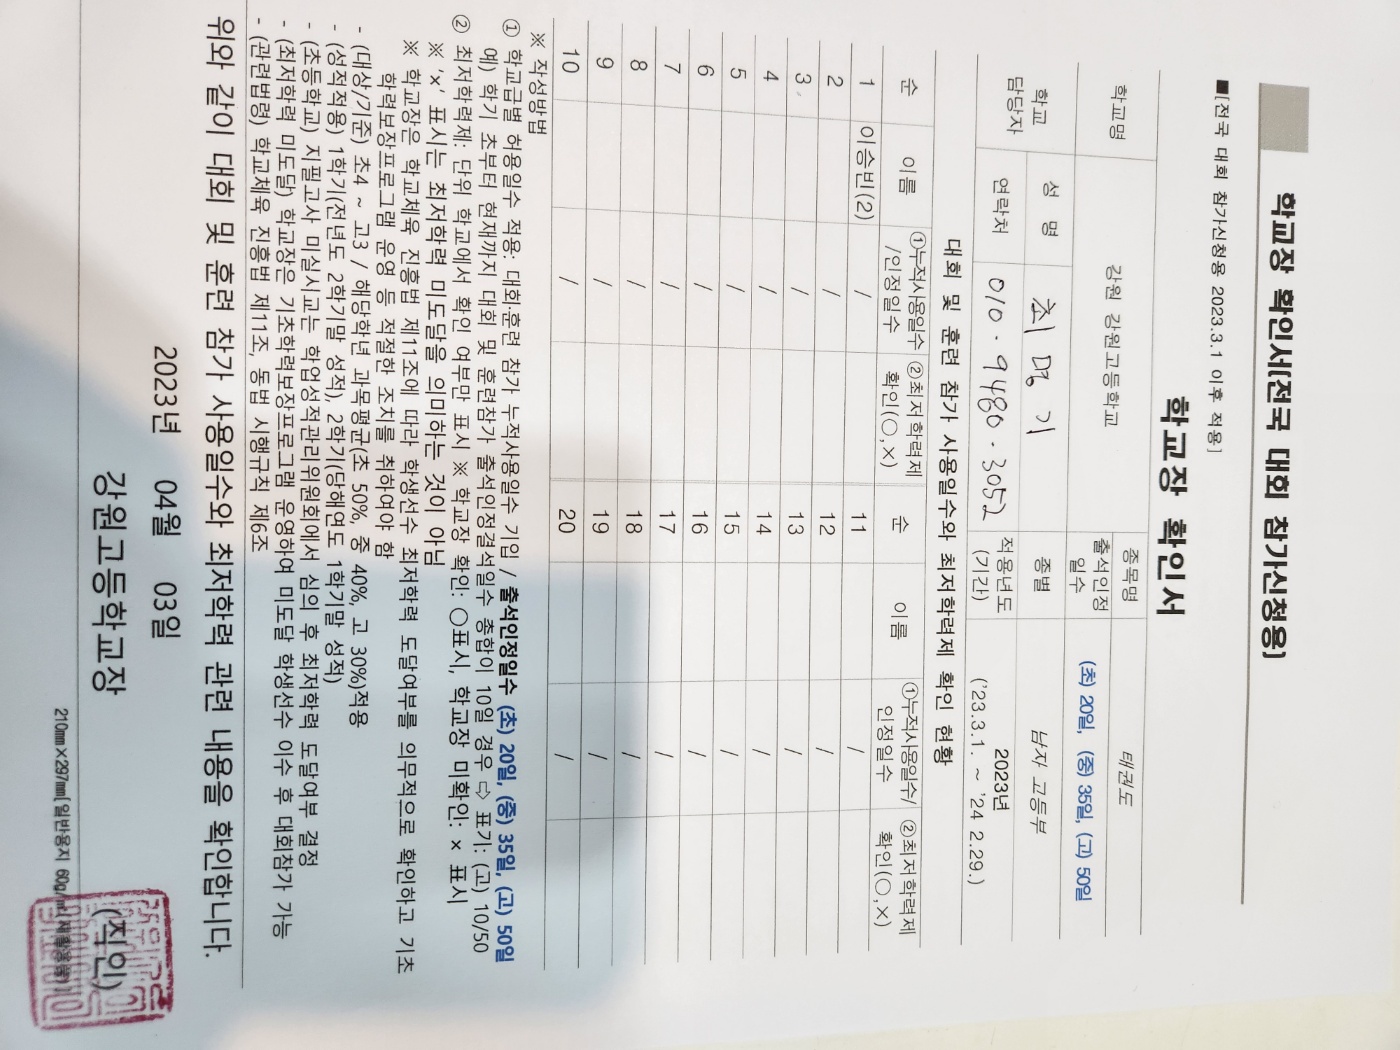 학교장 확인서[전국 대회 참가신청용]
■[전국 대회 참가신청용 2023.3.1 이후 적용]
학교장 확인서
학교명 강원 강원고등학교 종목명 태권도
출석인정일수 (초) 20일, (중) 35일, (고) 50일
학교 담당자 성 명 최 명 기 종별 남자 고등부
연락처 010 - 9480 - 3052 적용년도(기간) 2023년 ('23.3.1. ~ '24 2.29.)
대회 및 훈련 참가 사용일수와 최저학력제 확인 현황
순 이름 ①누적사용일수/인정일수 ②최저학력제 확인(○,×) 순 이름 ①누적사용일수/인정일수 ②최저학력제 확인(○,×)
1 이승빈(2) / 11 /
2 / 12 /
3 / 13 /
4 / 14 /
5 / 15 /
6 / 16 /
7 / 17 /
8 / 18 /
9 / 19 /
10 / 20 /
※ 작성방법
① 학교급별 허용일수 적용: 대회·훈련 참가 누적사용일수 기입 / 출석인정일수 (초) 20일, (중) 35일, (고) 50일
예) 학기 초부터 현재까지 대회 및 훈련참가 출석인정결석일수 총합이 10일 경우 ⇨ 표기: (고) 10/50
② 최저학력제: 단위 학교에서 확인 여부만 표시 ※ 학교장 확인: ○표시, 학교장 미확인: × 표시
※ '×' 표시는 최저학력 미도달을 의미하는 것이 아님
※ 학교장은 학교체육 진흥법 제11조에 따라 학생선수 최저학력 도달여부를 의무적으로 확인하고 기초
학력보장프로그램 운영 등 적절한 조치를 취하여야 함
- (대상/기준) 초4 ~ 고3 / 해당학년 과목평균(초 50%, 중 40%, 고 30%)적용
- (성적적용) 1학기(전년도 2학기말 성적), 2학기(당해연도 1학기말 성적)
- (초등학교) 지필고사 미실시교는 학업성적관리위원회에서 심의 후 최저학력 도달여부 결정
- (최저학력 미도달) 학교장은 기초학력보장프로그램 운영하여 미도달 학생선수 이수 후 대회참가 가능
- (관련법령) 학교체육 진흥법 제11조, 동법 시행규칙 제6조
위와 같이 대회 및 훈련 참가 사용일수와 최저학력 관련 내용을 확인합니다.
2023년 04월 03일
강원고등학교장 (직인)
210㎜×297㎜[일반용지 60g/㎡(재활용품)]